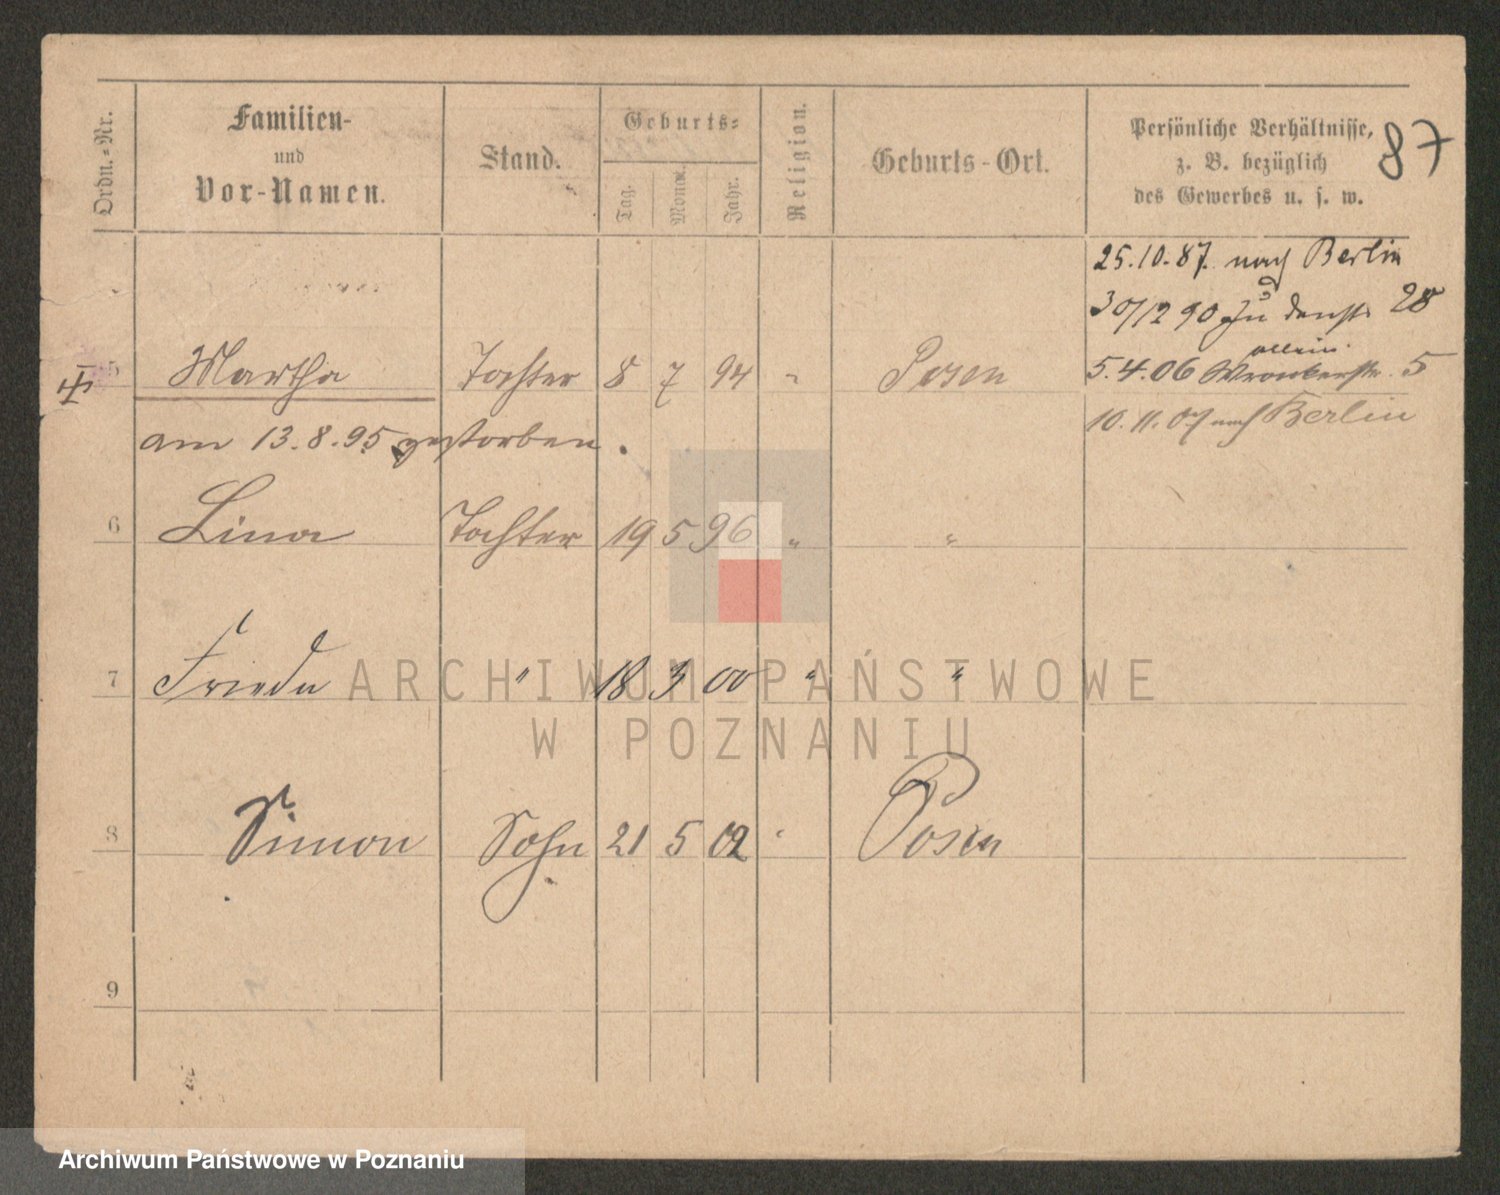 Ordn.-Nr.
Familien-
und
Vor-Namen.
Stand.
Geburts-
Tag.
Monat.
Jahr.
Religion.
Geburts-Ort.
Persönliche Verhältnisse,
z. B. bezüglich
des Gewerbes u. s. w.
87
25.10.87. nach Berlin
30/12 90 zu 28
allein
5 Martha Tochter 8 7 94 " Posen 5.4.06 Wronkerstr. 5
10.11.07 nach Berlin
am 13.8.95 gestorben.
6 Lina Tochter 19 5 96 " "
7 Frieda " 18 3 00 " "
ARCHIWUM PAŃSTWOWE
W POZNANIU
8 Simon Sohn 21 5 02 " Posen
9
Archiwum Państwowe w Poznaniu